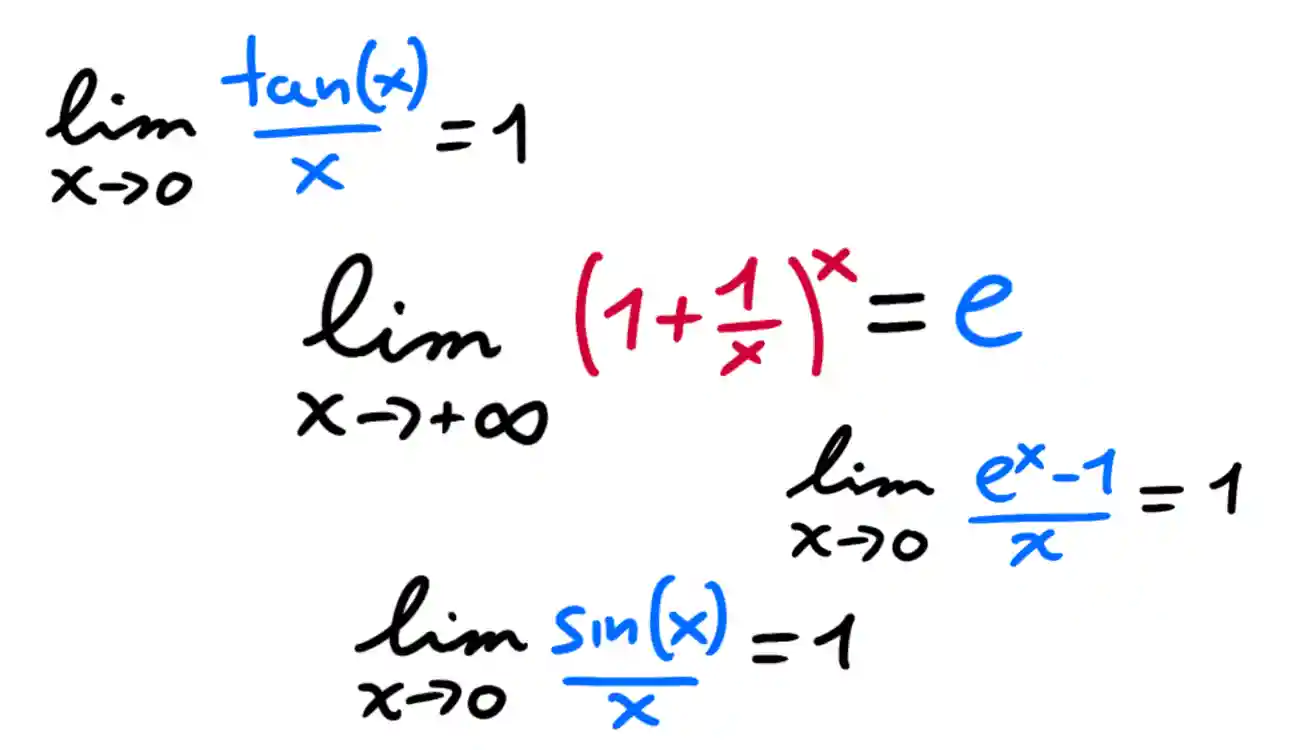 lim x→0 tan(x)/x = 1
lim x→+∞ (1+1/x)^x = e
lim x→0 e^x-1/x = 1
lim x→0 sin(x)/x = 1